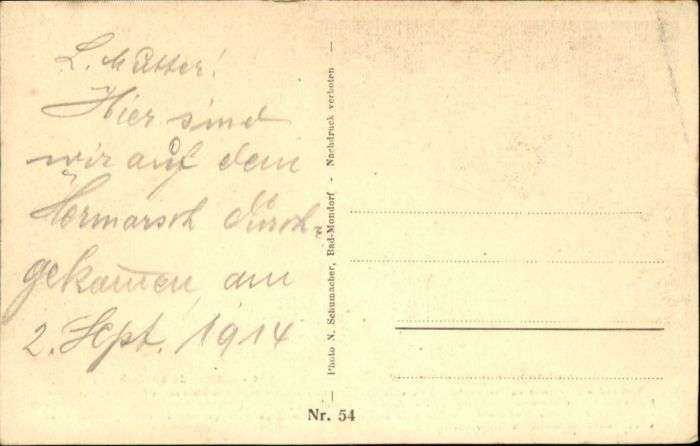 L. Mutter!
Hier sind
wir auf dem
Vormarsch durch-
gekom̅en, am
2. Sept. 1914
Photo N. Schumacher, Bad-Mondorf - Nachdruck verboten
Nr. 54